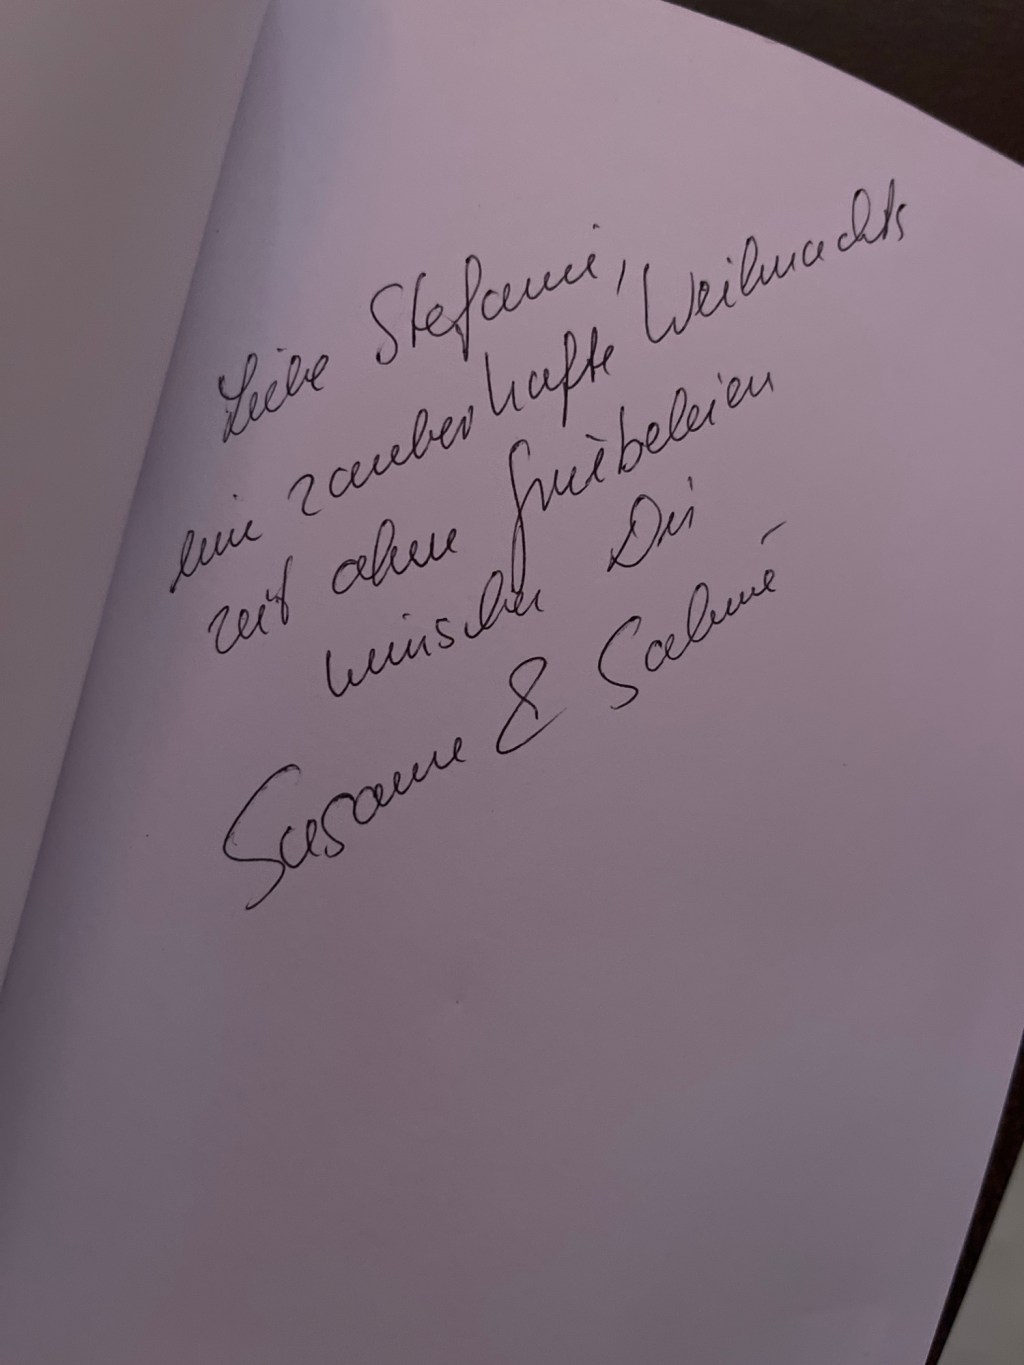 Liebe Stefanie,
eine zauberhafte Weihnachts
zeit ohne Grübeleien
wünschen Dir
Susanne & Sabine